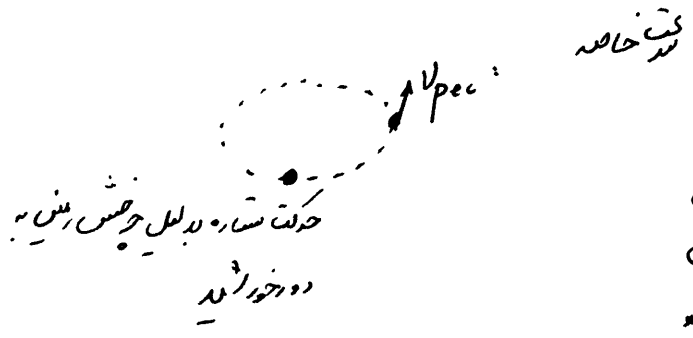 سرعت خاصه
V_pec :
حرکت ستاره بدلیل چرخش زمین به
دور خورشید